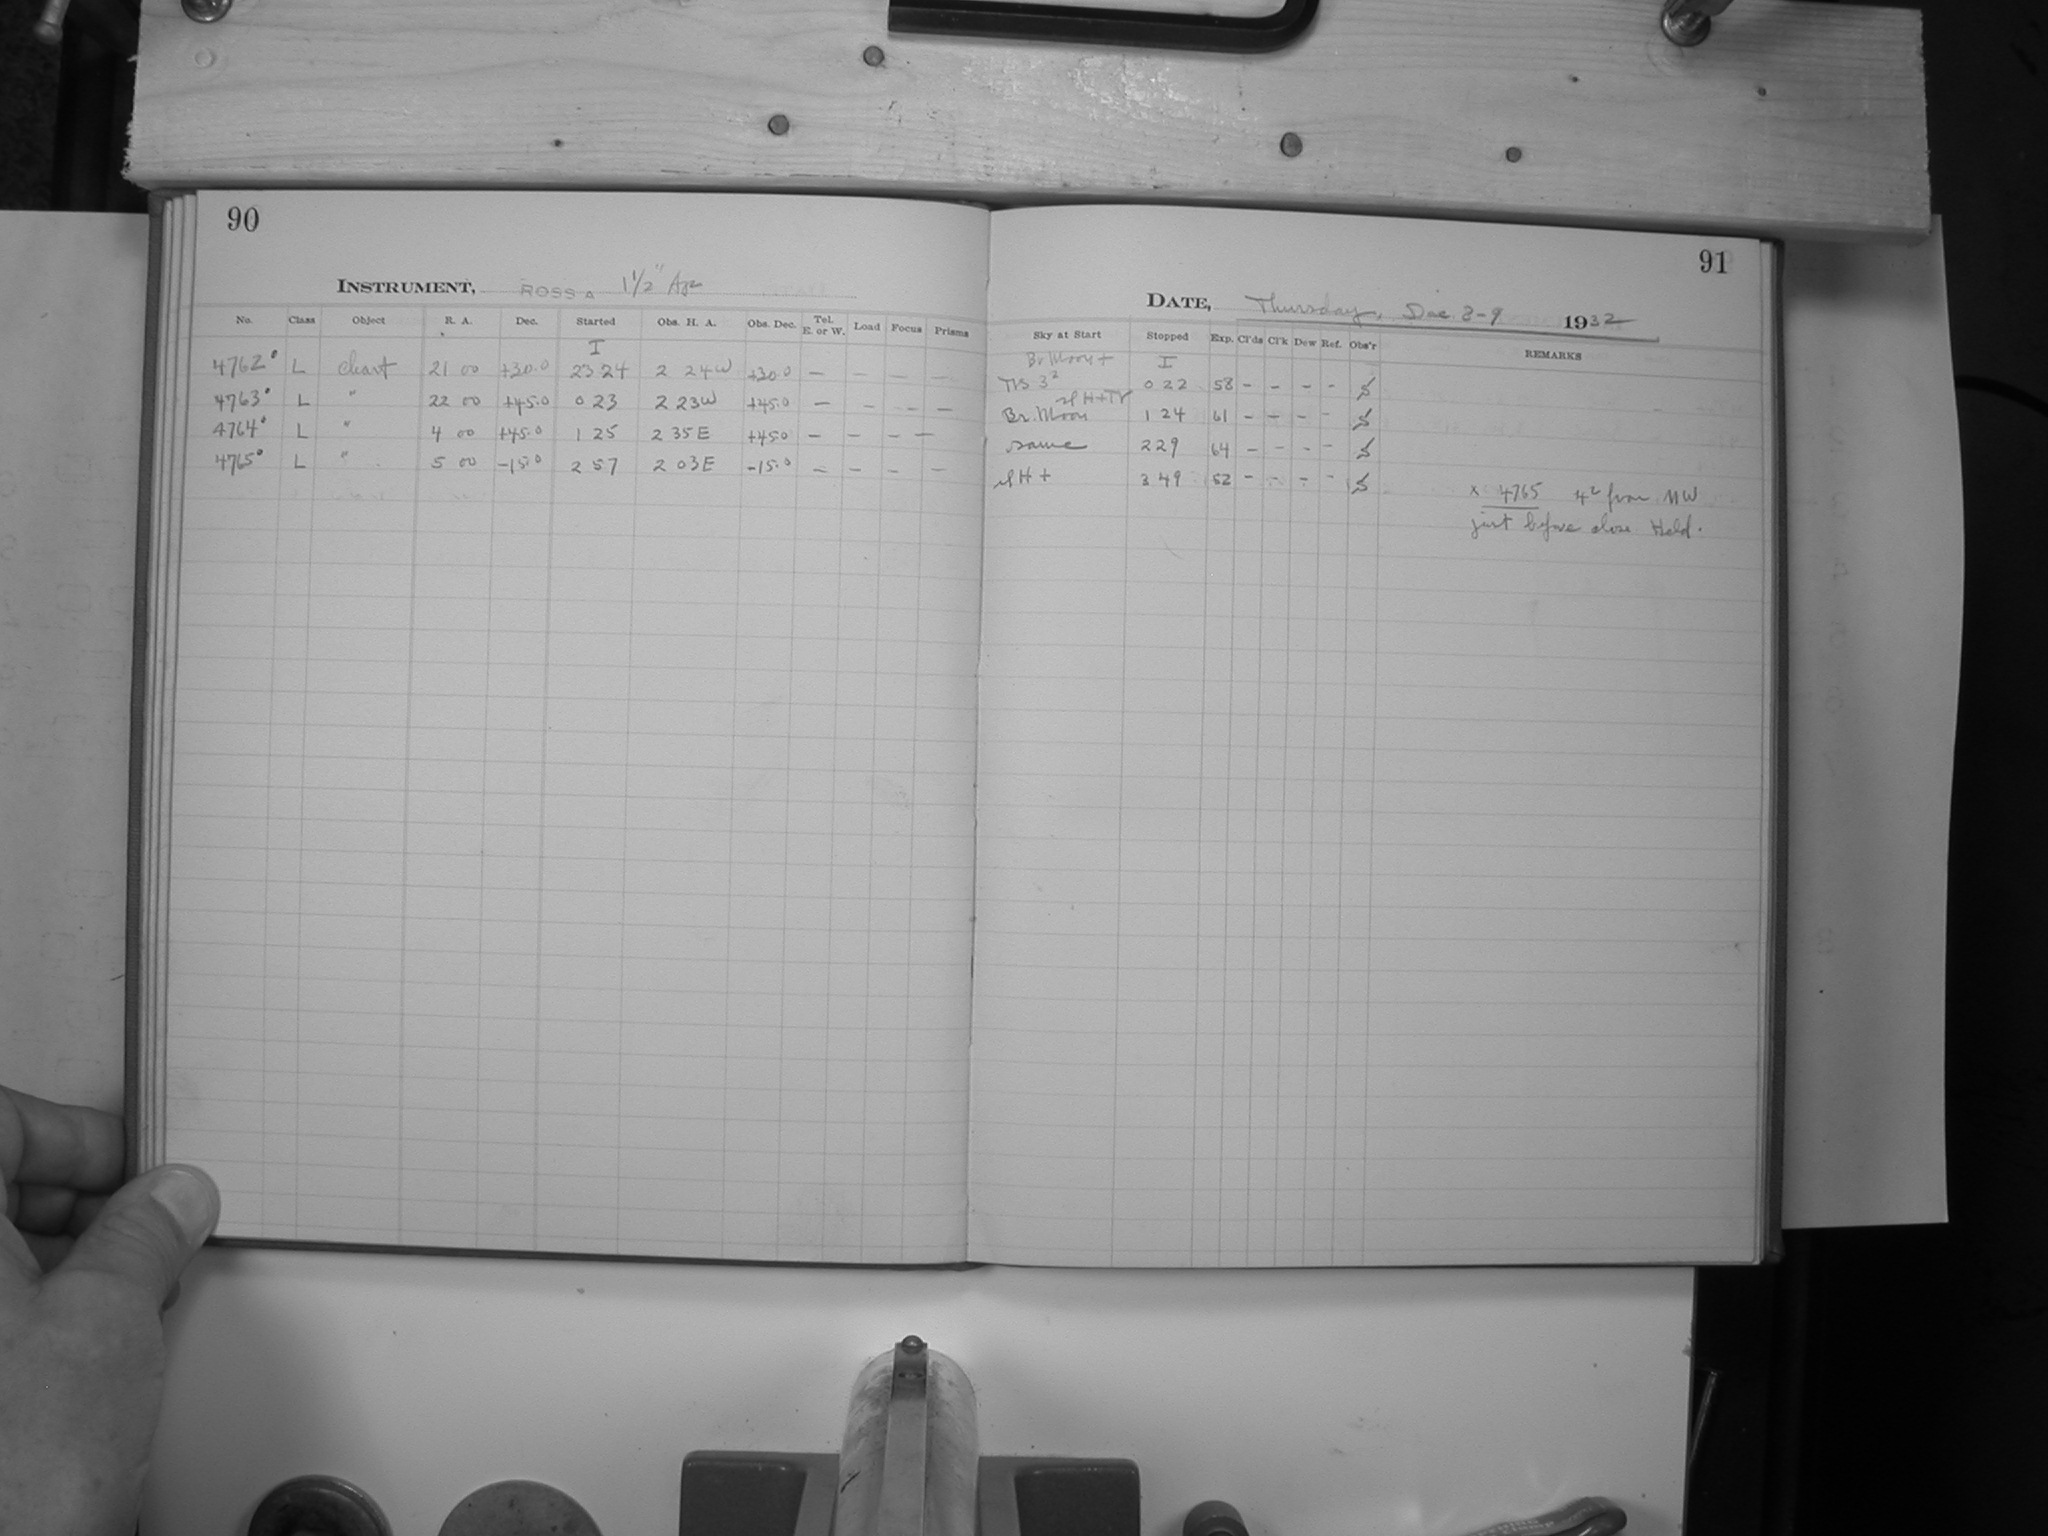 90
INSTRUMENT, ROSS A 1 1/2" Ape
No. Class Object R. A. Dec. Started Obs. H. A. Obs. Dec. Tel. E. or W. Load Focus Prisms
I
4762° L chart 21 00 +30.0 23 24 2 24 W +30.0 — — — —
4763° L " 22 00 +45.0 0 23 2 23 W +45.0 — — — —
4764° L " 4 00 +45.0 1 25 2 35 E +45.0 — — — —
4765° L " 5 00 -15.0 2 57 2 03 E -15.0 — — — —
91
DATE, Thursday, Dec 8-9 1932
Sky at Start Stopped Exp. Cl'ds Cl'k Dew Ref. Obs'r REMARKS
Br. Moon + I
3² 0 22 58 - - - -
Br. Moon 1 24 61 - + - -
same 2 29 64 - - - -
H + 3 49 52 - - - -
x 4765 4² from NW
just before close Held.